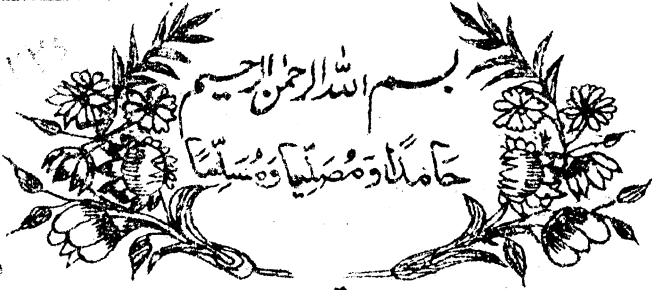 بسم الله الرحمن الرحيم
حَامِدًا وَمُصَلِّيا وَمُسَلِّمَا